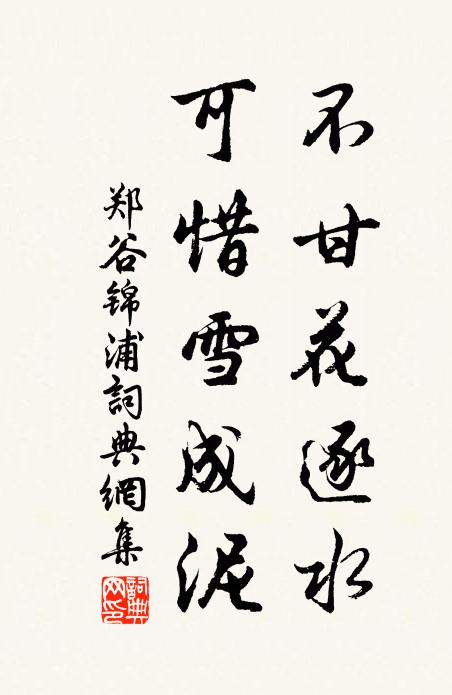 不甘花逐水
可惜雪成泥
郑谷锦浦詞典網集
詞典
网印